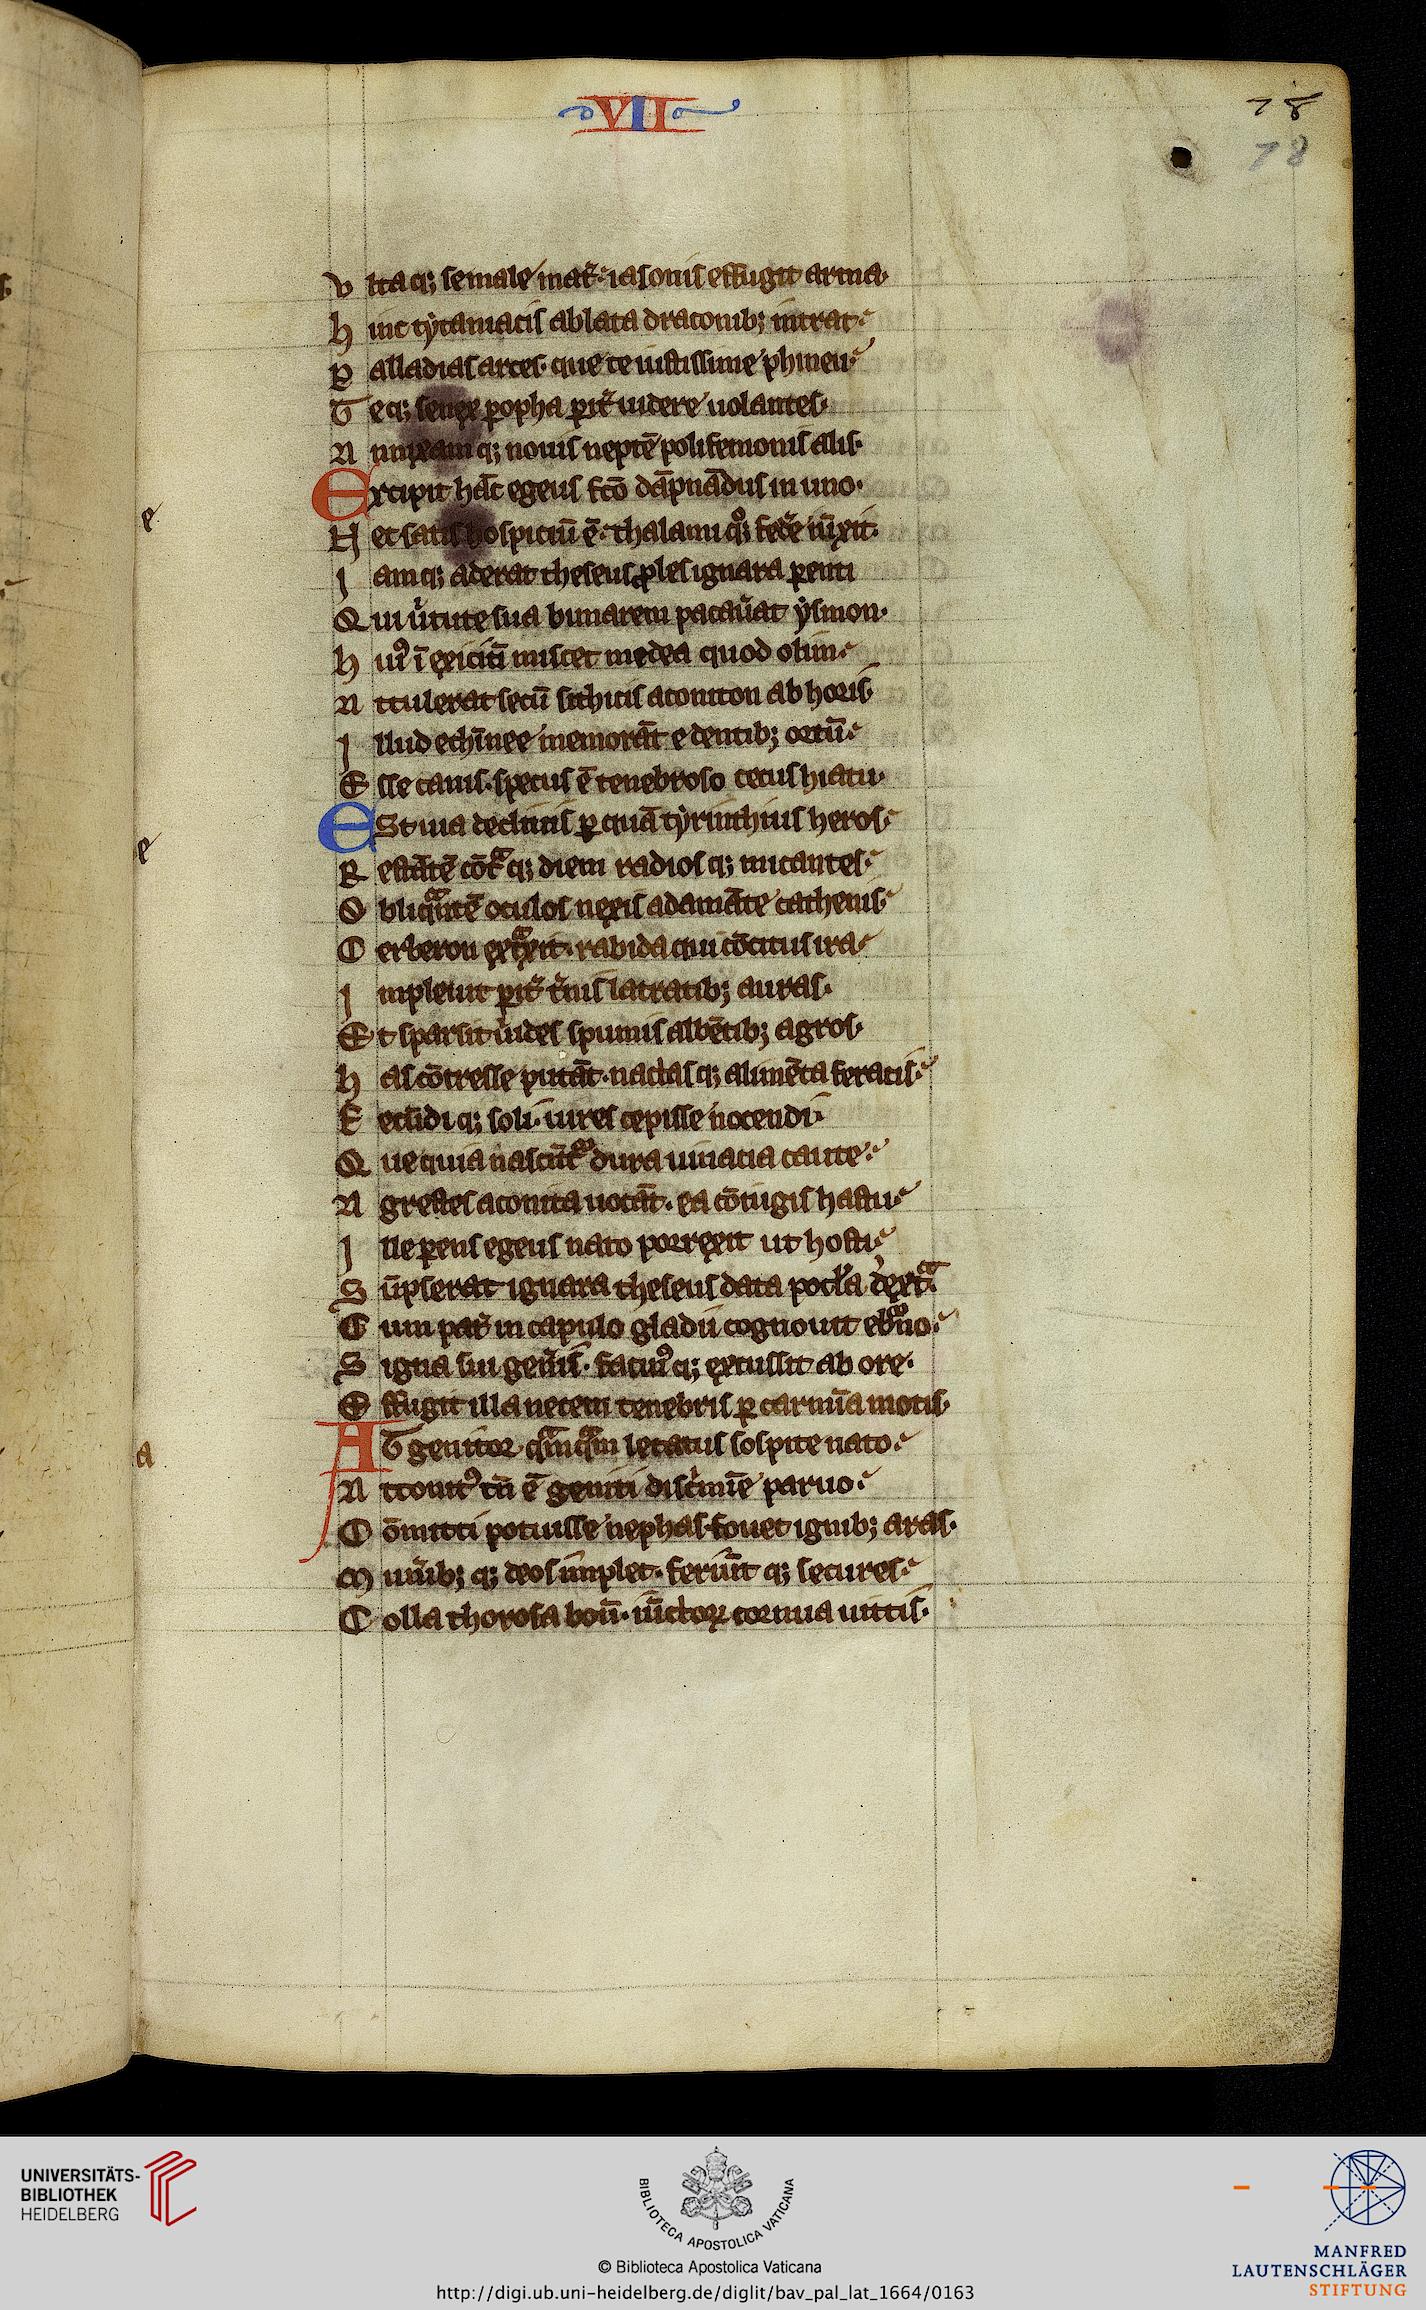 VII
78
78
V ltaq; se male mat̃ iasonis effugit arma.
H inc tytaniacis ablata draconib; intrat
P alladias arces. que te iustissime phineu
T eq; senex popha pit̃ uidere uolantes.
A nnixamq; nouis neptē polifemonis alis.
Excipit hāc egeus fc̄o dāpnādus in uno.
H ec satis hospiciū ē. thalami q̊q; federe iūxit.
J amq; aderat theseus ples ignara penti
Q ui ũtute sua bimarem pacau̾at ysmon.
H uꝰ ī exiciū miscet medea quod olim
A ttulerat secū sithicis aconiton ab horis.
J llud echīnee memorāt e dentib; ortū
E sse canis. specus ē tenebroso cecus hiatu.
ESt uia decliuis p quā tyrinthius heros
R estātē cōtᵃq; diem radiosq; micantes
O bliqᵃntē oculos nexis adamāte cathenis
C erberon extᵃxit. rabida qui cōcitus ira
J mpleuit pit̃ t̾nis latratib; auras.
E t sparsit uides spumis albētib; agros.
H as cōcresse putāt. nactasq; alimēta feracis
F ecūdiq; soli. uires cepisse nocendi.
Q ue quia nascūt᷑ dura uiuacia caute
A grestes aconita uocāt. ea cōiugis hastu
J lle pens egeus nato porrexit ut hosti
S ūpserat ignara theseus data pocl̾a dextᵃ.
C um pat̾ in capulo gladii cognouit eb̾no
S igna sui gen̾is. facinꝰq; excussit ab ore.
E ffugit illa necem tenebris p carmīa motis.
AT genitor qᵃmqᵃm letatus sospite nato
A ttonitꝰ tn̄ ē geniti discⁱmīe paruo
C ōmitti potuisse nephas. fouet ignib; aras.
M un̾ib;q; deos implet. feriūtq; secures
C olla thorosa boū. iūctoꝝ cornua uittis.
e
e
a
UNIVERSITÄTS-
BIBLIOTHEK
HEIDELBERG
BIBLIOTECA APOSTOLICA VATICANA
© Biblioteca Apostolica Vaticana
http://digi.ub.uni-heidelberg.de/diglit/bav_pal_lat_1664/0163
MANFRED
LAUTENSCHLÄGER
STIFTUNG